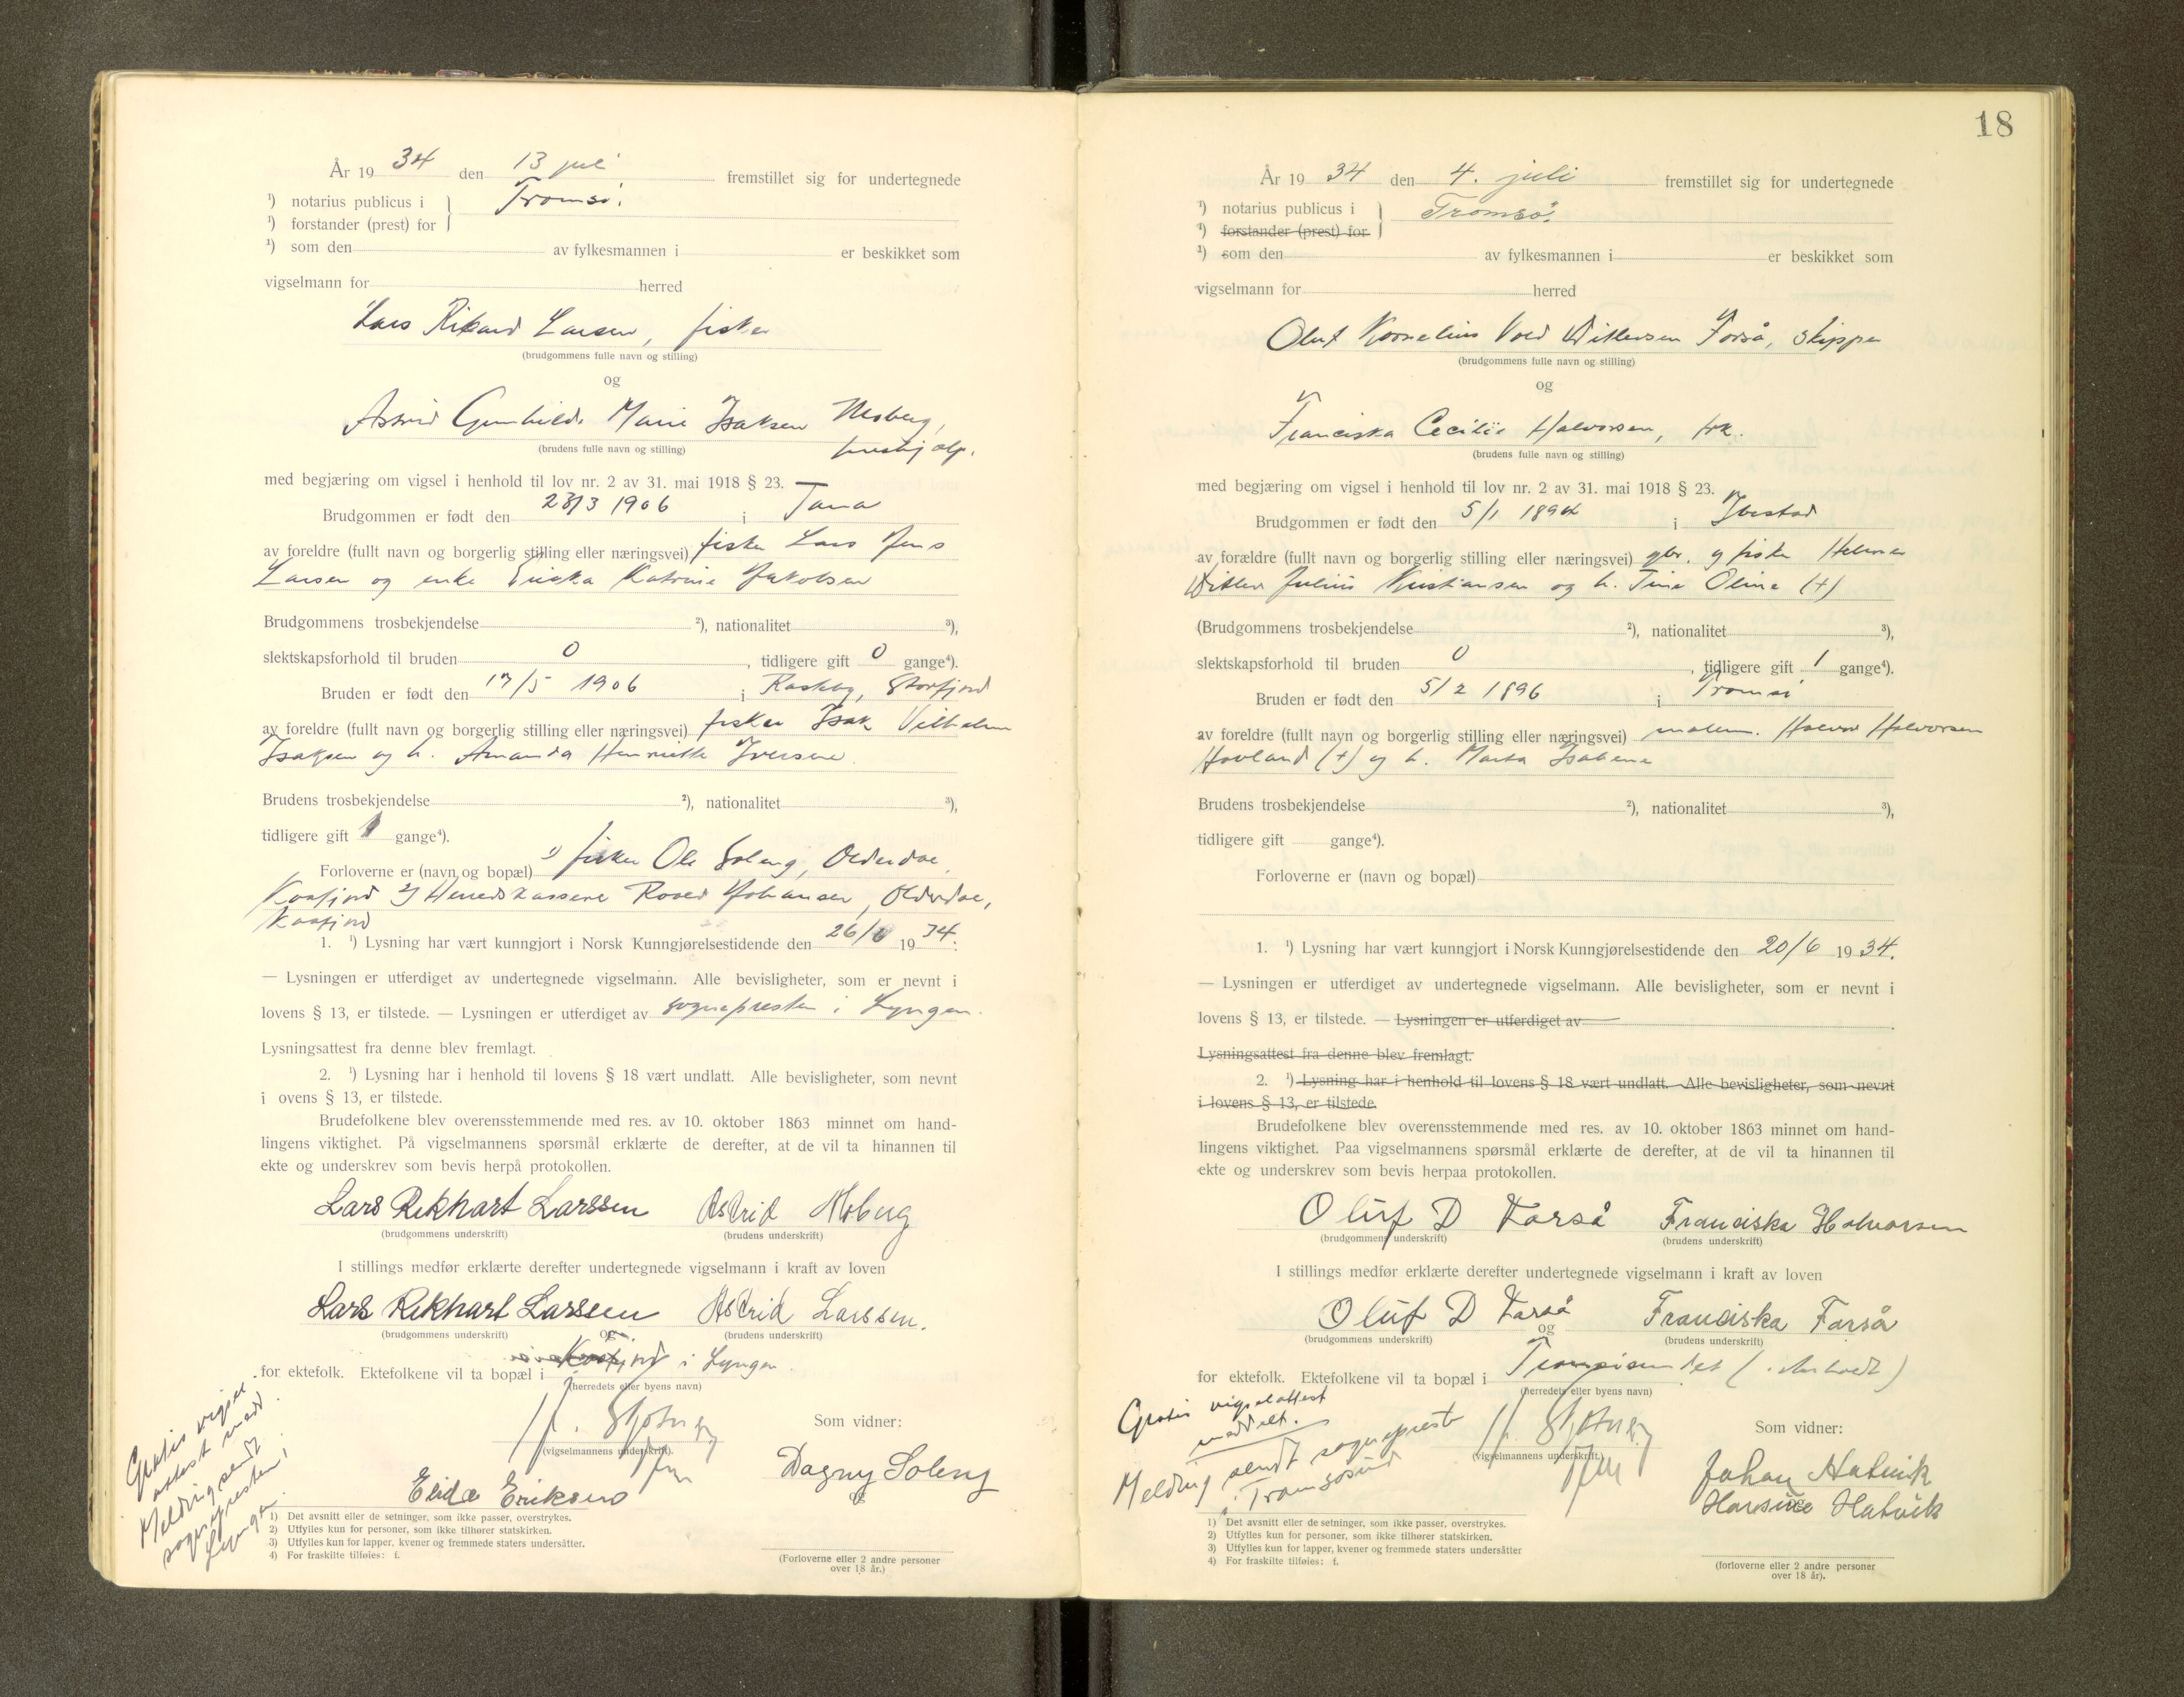 År 19 34 den 13 juli fremstillet sig for undertegnede
¹) notarius publicus i } Tromsö.
¹) forstander (prest) for
¹) som den av fylkesmannen i er beskikket som
vigselmann for herred
Lars Rikard Larsen, fisker
(brudgommens fulle navn og stilling)
og
Astrid Gunhilda Marie Isaksen Moberg,
(brudens fulle navn og stilling)
hushjelp.
med begjæring om vigsel i henhold til lov nr. 2 av 31. mai 1918 § 23.
Brudgommen er født den 23/3 1906 i Tana
av foreldre (fullt navn og borgerlig stilling eller næringsvei) fisker Lars Jens
Larsen og enke Ericka Katrine Jakobsen
Brudgommens trosbekjendelse ²), nationalitet ³),
slektskapsforhold til bruden 0, tidligere gift 0 gange⁴).
Bruden er født den 17/5 1906 i Storfjord
av foreldre (fullt navn og borgerlig stilling eller næringsvei) fisker Isak Vilhelm
Isaksen og h. Amanda Henriette Iversen.
Brudens trosbekjendelse ²), nationalitet ³),
tidligere gift 1 gange⁴).
Forloverne er (navn og bopæl) 1) fisker Ole Soleng, Olderdal,
Kaafjord 2) Herredskasserer Johansen, Olderdal,
Kaafjord
1. ¹) Lysning har vært kunngjort i Norsk Kunngjørelsestidende den 26/6 19 34.
— Lysningen er utferdiget av undertegnede vigselmann. Alle bevisligheter, som er nevnt i
lovens § 13, er tilstede. — Lysningen er utferdiget av sognepresten i Lyngen.
Lysningsattest fra denne blev fremlagt.
2. ¹) Lysning har i henhold til lovens § 18 vært undlatt. Alle bevisligheter, som nevnt
i ovens § 13, er tilstede.
Brudefolkene blev overensstemmende med res. av 10. oktober 1863 minnet om hand-
lingens viktighet. På vigselmannens spørsmål erklærte de derefter, at de vil ta hinannen til
ekte og underskrev som bevis herpå protokollen.
Lars Rekhart Larssen Astrid Moberg
(brudgommens underskrift) (brudens underskrift)
I stillings medfør erklærte derefter undertegnede vigselmann i kraft av loven
Lars Rekhart Larssen Astrid Larssen.
(brudgommens underskrift) og (brudens underskrift)
for ektefolk. Ektefolkene vil ta bopæl i Kaafjord i Lyngen.
(herredets eller byens navn)
Som vidner:
(vigselmannens underskrift).
Dagny Soleng
Elida Eriksen
og
Gratis vigsel-
attest medd.
Melding sendt
sognepresten i
Lyngen.
1) Det avsnitt eller de setninger, som ikke passer, overstrykes.
2) Utfylles kun for personer, som ikke tilhører statskirken.
3) Utfylles kun for lapper, kvener og fremmede staters undersåtter.
4) For fraskilte tilføies: f.
(Forloverne eller 2 andre personer
over 18 år.)
18
År 19 34 den 4. juli fremstillet sig for undertegnede
¹) notarius publicus i } Tromsö.
¹) forstander (prest) for
¹) som den av fylkesmannen i er beskikket som
vigselmann for herred
Oluf Kornelius Vold Ditlevsen Forså, skipper
(brudgommens fulle navn og stilling)
og
Franciska Cecilie Halvorsen, frk.
(brudens fulle navn og stilling)
med begjæring om vigsel i henhold til lov nr. 2 av 31. mai 1918 § 23.
Brudgommen er født den 5/1 1894 i Ibestad
av forældre (fullt navn og borgerlig stilling eller næringsvei) gbr. og fisker Helmer
Ditlev Julius Kristiansen og h. Tina Oline (+)
(Brudgommens trosbekjendelse ²), nationalitet ³),
slektskapsforhold til bruden 0, tidligere gift 1 gange⁴).
Bruden er født den 5/2 1896 i Tromsö
av foreldre (fullt navn og borgerlig stilling eller næringsvei) malerm. Halvor Halvorsen
Hovland (+) og h. Marta Isabena
Brudens trosbekjendelse ²), nationalitet ³),
tidligere gift gange⁴).
Forloverne er (navn og bopæl)
1. ¹) Lysning har vært kunngjort i Norsk Kunngjørelsestidende den 20/6 19 34.
— Lysningen er utferdiget av undertegnede vigselmann. Alle bevisligheter, som er nevnt i
lovens § 13, er tilstede. — Lysningen er utferdiget av
Lysningsattest fra denne blev fremlagt.
2. ¹) Lysning har i henhold til lovens § 18 vært undlatt. Alle bevisligheter, som nevnt
i lovens § 13, er tilstede.
Brudefolkene blev overensstemmende med res. av 10. oktober 1863 minnet om hand-
lingens viktighet. Paa vigselmannens spørsmål erklærte de derefter, at de vil ta hinannen til
ekte og underskrev som bevis herpaa protokollen.
Oluf D Forså Franciska Halvorsen
(brudgommens underskrift) (brudens underskrift)
I stillings medfør erklærte derefter undertegnede vigselmann i kraft av loven
Oluf D Forså Franciska Forså
(brudgommens underskrift) og (brudens underskrift)
for ektefolk. Ektefolkene vil ta bopæl i Tromsösundet
(herredets eller byens navn)
Gratis vigselattest
meddelt.
Melding sendt sogneprest
i Tromsösund
Som vidner:
(vigselmannens underskrift).
Johan Hatvik
og
Hansine Hatvik
1) Det avsnitt eller de setninger, som ikke passer, overstrykes.
2) Utfylles kun for personer, som ikke tilhører statskirken.
3) Utfylles kun for lapper, kvener og fremmede staters undersåtter
4) For fraskilte tilføies: f.
(forloverne eller 2 andre personer
over 18 år).